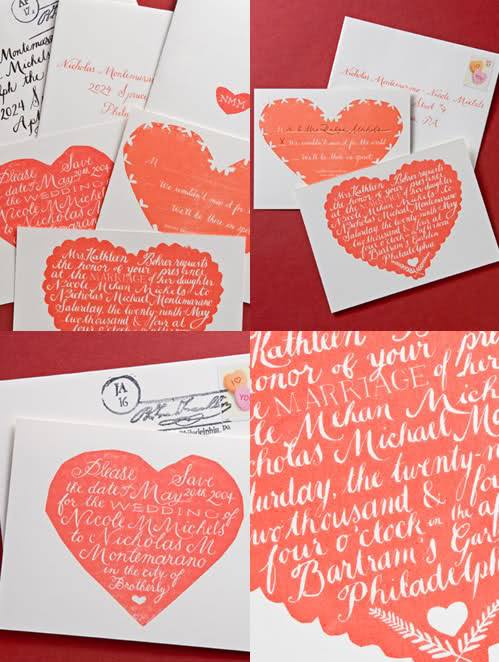 AP
17
Nicholas Montemarano
2024 Spruce
NMM
Please Save
the date of May 20th 2004
for the WEDDING
Nicole M Michels
to Nicholas M
M
We wouldn't miss it for
We'll be there in spirit
Mrs. Kathleen Behrer requests
the honor of your presence
at the MARRIAGE of her daughter
Nicole Mehan Michels to
Nicholas Michael Montemarano
Saturday, the twenty-ninth May
two thousand & four at
four o'clock
Nicholas Montemarano · Nicole Michels
PA
We wouldn't miss it for the world
We'll be there in spirit
Mrs. Kathleen Behrer requests
the honor of your presence
at the MARRIAGE of her daughter
Nicole Mehan Michels to
Nicholas Michael Montemarano
Saturday the twenty-ninth May
two thousand & four at
four o'clock in the afternoon
Bartram's Garden
Philadelphia
JA
16
Philadelphia, Pa
YOU
Please Save
the date of May 20th 2004
for the WEDDING of
Nicole M Michels
to Nicholas M
Montemarano
in the city of
Brotherly
Kathleen B
honor of your pre
MARRIAGE of her
le Mehan Mich
holas Michael M
turday, the twenty-n
two thousand & fo
four o'clock in the a
Bartram's Gar
Philadelph